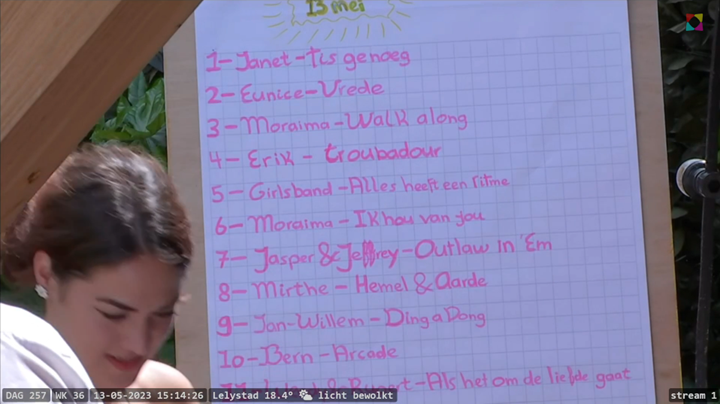 13 mei
1-Janet-tis genoeg
2-Eunice-Vrede
3-Moraima-Walk along
4-Erik-troubadour
5-Girlsband-Alles heeft een ritme
6-Moraima-Ik hou van jou
7-Jasper & Jeffrey-Outlaw in 'Em
8-Mirthe-Hemel & Aarde
9-Jan-Willem-Ding a Dong
10-Bern-Arcade
-Als het om de liefde gaat
DAG 257 WK 36 13-05-2023 15:14:26 Lelystad 18.4° licht bewolkt stream 1